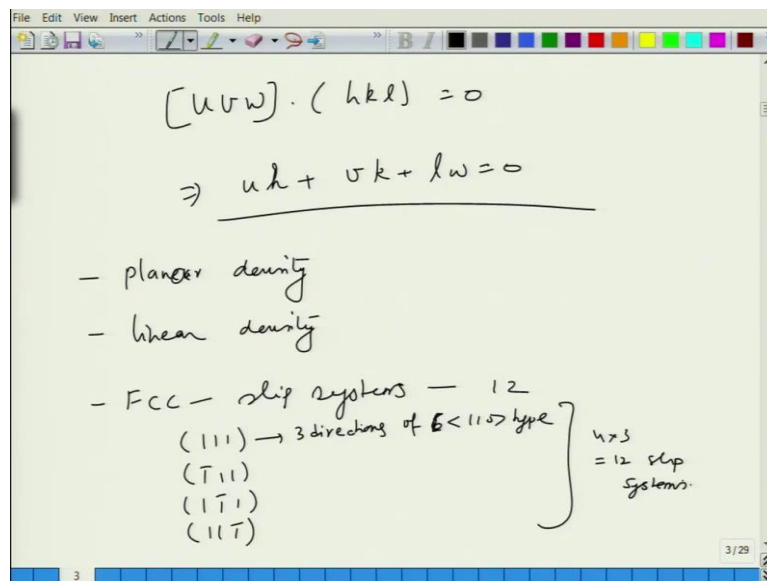 File Edit View Insert Actions Tools Help
» » B I
[u v w] . ( h k l ) = 0
⇒ uh + vk + lw = 0
- planar density
- linear density
- FCC - slip systems - 12
(111) → 3 directions of 6 <110> type
(1̅11)
(11̅1)
(111̅)
4×3
= 12 slip
systems.
3/29
3